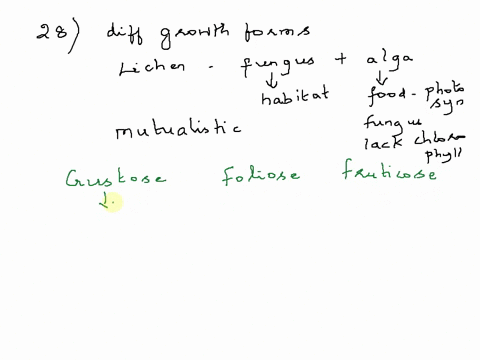 28) diff growth forms
Lichen - fungus + alga
habitat food - photo
syn
mutualistic fungus
lack chloro
phyll
Crustose foliose fruticose